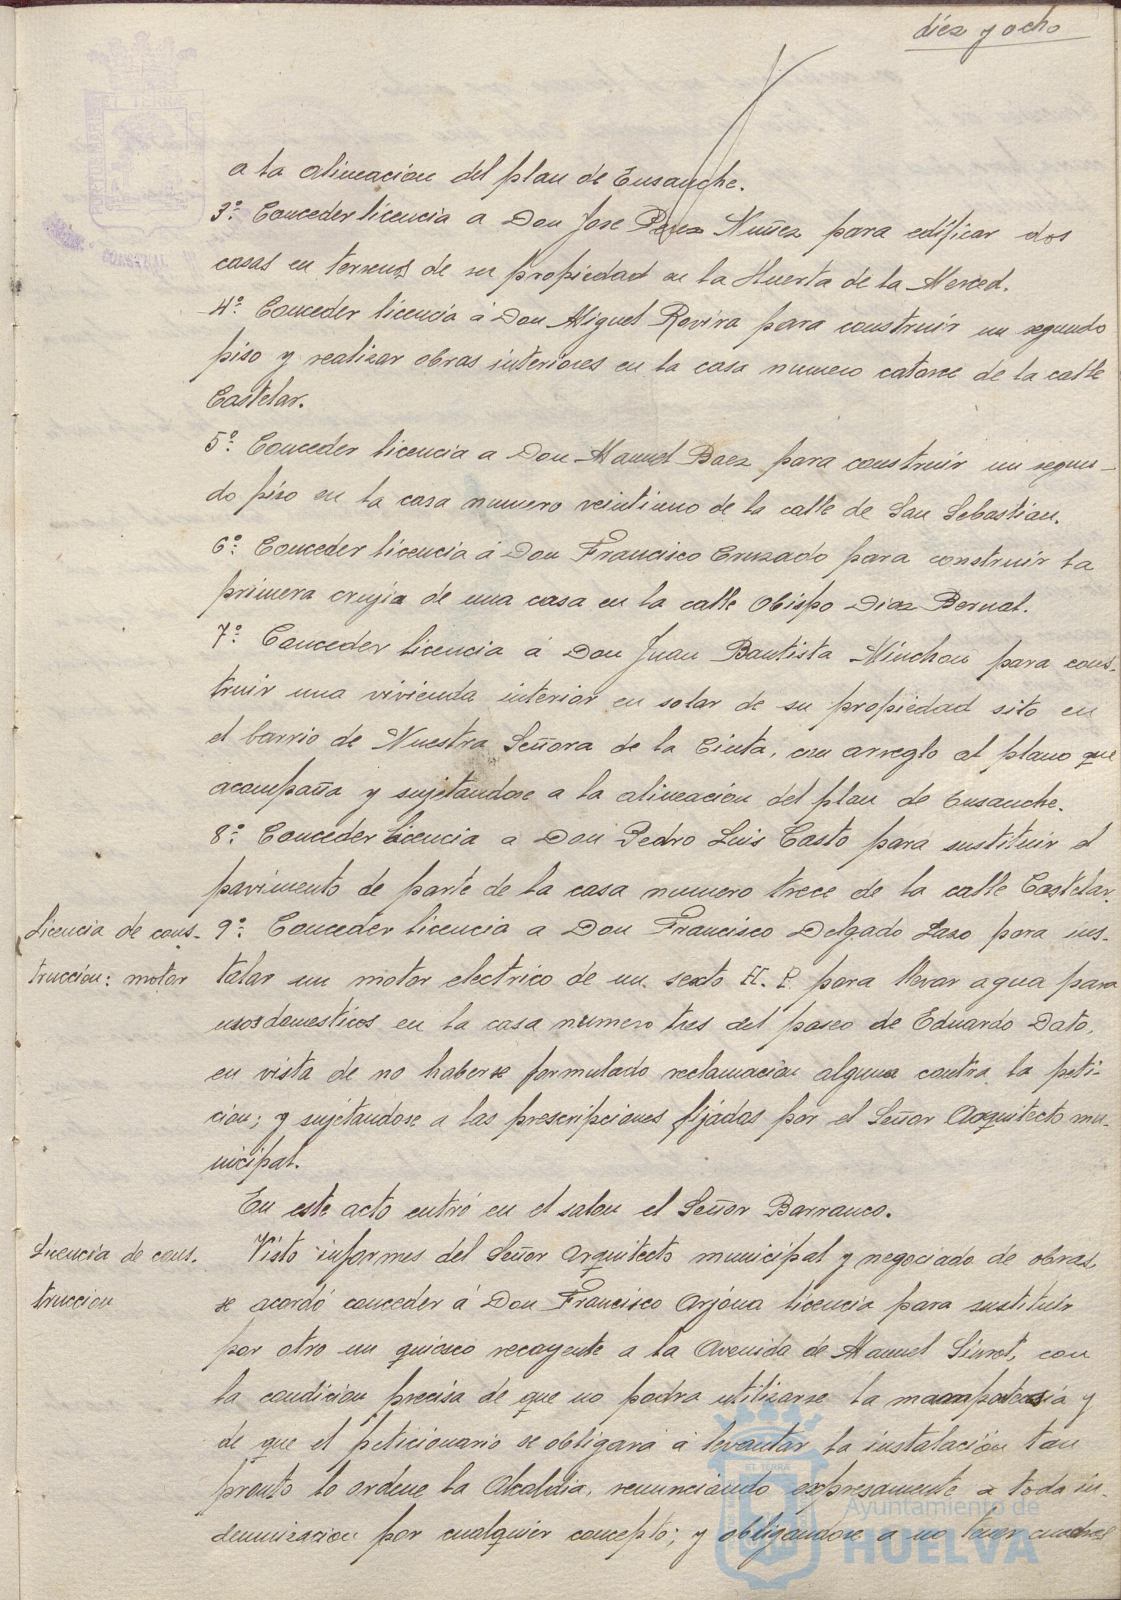 diez y ocho
a la alineacion del plan de Ensanche.
3º: Conceder licencia á Don Jose Perez Nuñez para edificar dos
casas en terrenos de su propiedad en la Huerta de la Merced.
4º: Conceder licencia á Don Miguel Rovira para construir un segundo
piso y realizar obras interiores en la casa numero catorce de la calle
Castelar.
5º: Conceder licencia a Don Manuel Baez para construir un segun-
do piso en la casa numero veintiuno de la calle de San Sebastian.
6º: Conceder licencia á Don Francisco Cruzado para construir la
primera crujia de una casa en la calle Obispo Diaz Bernal.
7º: Conceder licencia á Don Juan Bautista Minchon para cons-
truir una vivienda interior en solar de su propiedad sito en
el barrio de Nuestra Señora de la Cinta, con arreglo al plano que
acompaña y sujetandose a la alineacion del plan de Ensanche.
8º: Conceder licencia a Don Pedro Luis Casto para sustituir el
pavimento de parte de la casa numero trece de la calle Castelar.
Licencia de cons-
truccion: motor
9º: Conceder licencia a Don Francisco Delgado Lazo para ins-
talar un motor electrico de un sexto H. P. para llevar agua para
usos domesticos en la casa numero tres del paseo de Eduardo Dato,
en vista de no haberse formulado reclamacion alguna contra la peti-
cion; y sujetandose a las prescripciones fijadas por el Señor Arquitecto mu-
nicipal.
En este acto entró en el salon el Señor Barranco.
Licencia de cons-
truccion
Visto informes del Señor Arquitecto municipal y negociado de obras,
se acordó conceder á Don Francisco Arjona licencia para sustituir
por otro un quiosco recayente a la Avenida de Manuel Siurot, con
la condicion precisa de que no podra utilizarse la mamposteria y
de que el peticionario se obligará á levantar la instalación tan
pronto lo ordene la Alcaldia, renunciando expresamente a toda in-
demnizacion por cualquier concepto; y obligandose a no tener
ET TERRA
Ayuntamiento de
HUELVA